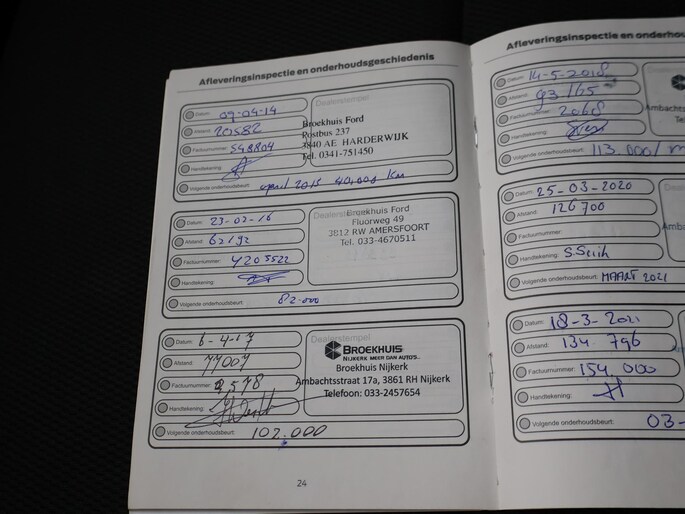 Afleveringsinspectie en onderhoudsgeschiedenis
Datum: 09-04-14
Afstand: 20582
Factuurnummer: 548804
Handtekening:
Volgende onderhoudsbeurt: april 2015 40,000 Km
Dealerstempel
Broekhuis Ford
Postbus 237
3840 AE HARDERWIJK
Tel. 0341-751450
Datum: 23-02-16
Afstand: 62192
Factuurnummer: 4205522
Handtekening:
Volgende onderhoudsbeurt: 82.000
Broekhuis Ford
Fluorweg 49
3812 RW AMERSFOORT
Tel. 033-4670511
Datum: 6-4-17
Afstand: 77007
Factuurnummer: 2578
Handtekening:
Volgende onderhoudsbeurt: 102.000
Dealerstempel
BROEKHUIS
NIJKERK MEER DAN AUTO'S..
Broekhuis Nijkerk
Ambachtsstraat 17a, 3861 RH Nijkerk
Telefoon: 033-2457654
24
Afleveringsinspectie en onderhou
Datum: 14-5-2018
Afstand: 93165
Factuurnummer: 2068
Handtekening:
Volgende onderhoudsbeurt: 113.000/ m
Ambachts
Te
Datum: 25-03-2020
Afstand: 126700
Factuurnummer:
Handtekening:
Volgende onderhoudsbeurt: MAART 2021
Amba
Datum: 18-3-2021
Afstand: 134 796
Factuurnummer: 154.000
Handtekening:
Volgende onderhoudsbeurt: 03-